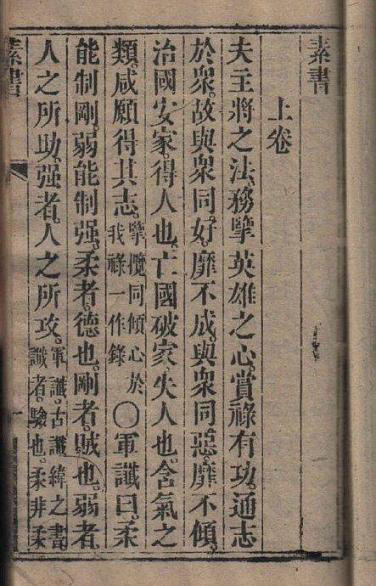 素書
上卷
夫主將之法。務擥英雄之心。賞祿有功。通志
於衆。故與衆同好。靡不成。與衆同惡。靡不傾。
治國安家。得人也。亡國破家。失人也。含氣之
類。咸願得其志。擥攬同傾心於
我祿一作錄
○軍讖曰。柔
能制剛。弱能制强。柔者。德也。剛者。賊也。弱者。
人之所助。强者。人之所攻。軍讖。古讖緯之書。
讖者。驗也。柔非柔
素書
一